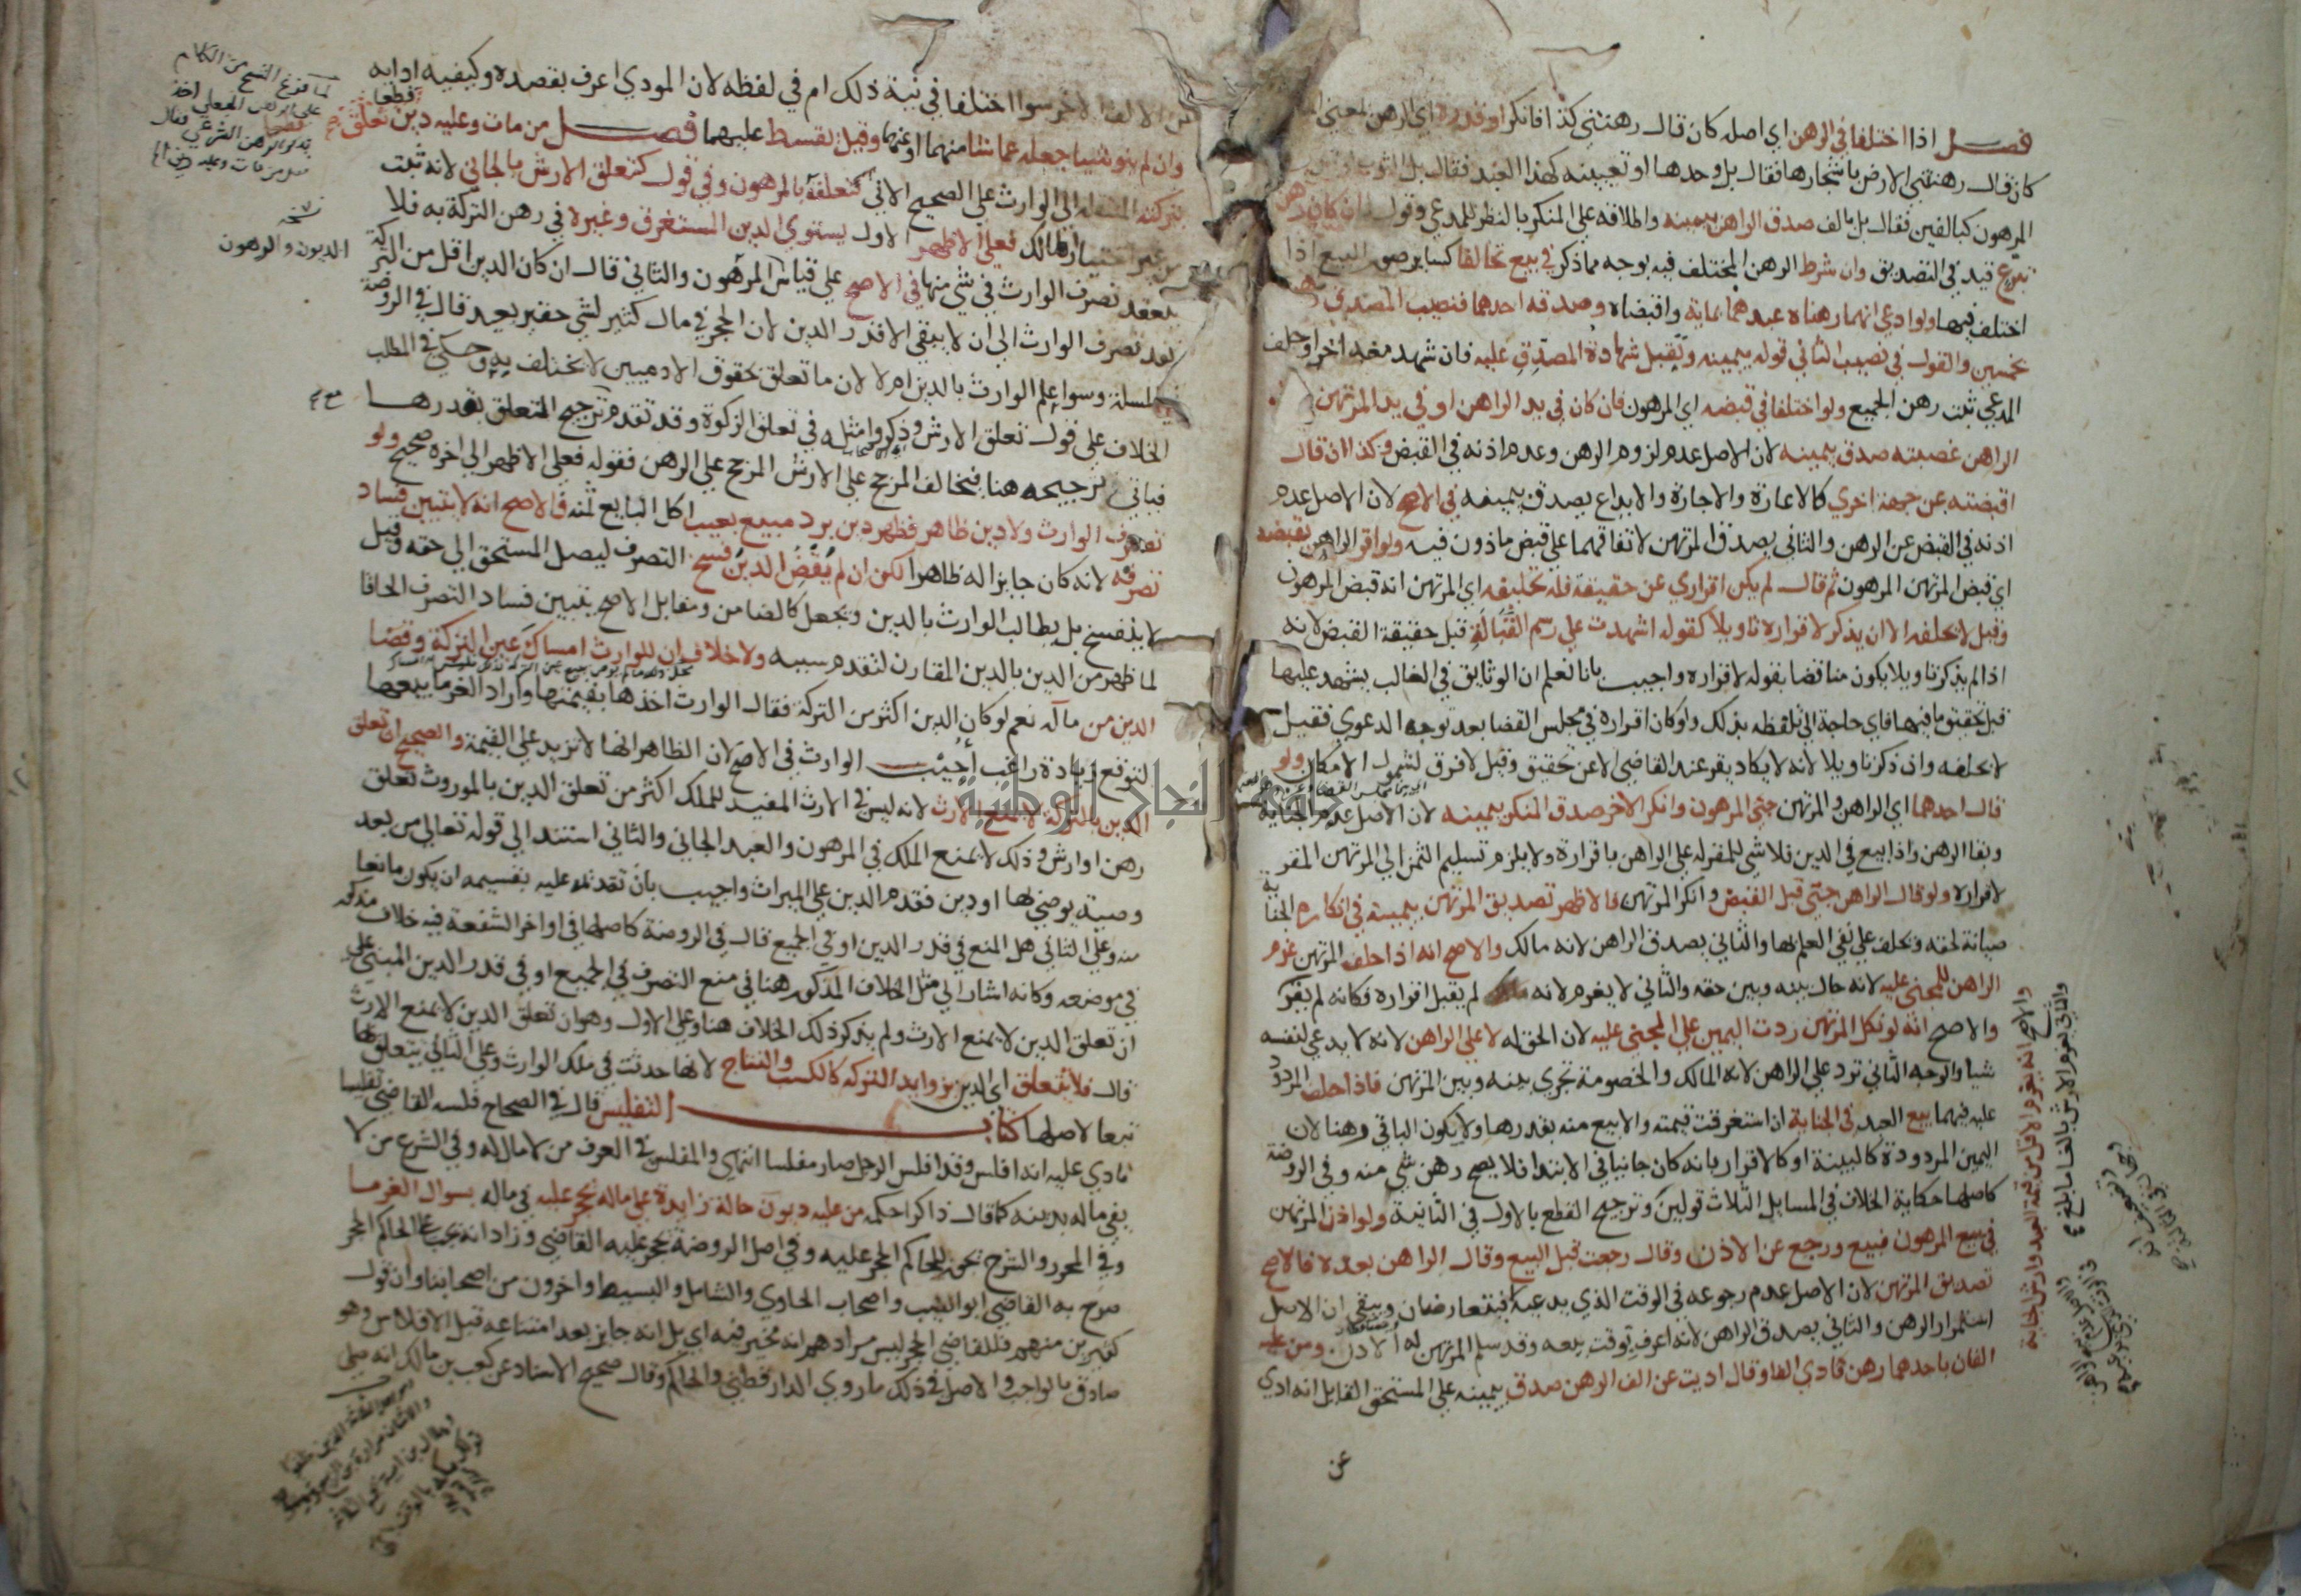 فصل اذا اختلفا في الرهن اي اصله كان قال رهنتني كذا فانكر او قدره اي الرهن بمعني
كان قال رهنتني الارض باشجارها فقال بل وحدها او تعيينه كهذا العبد فقال بل الثوب او قدر
المرهون كبالفين فقال بل بالف صدق الراهن بيمينه واطلاقه علي المنكر بالنظر للمدعي وقوله ان كان رهن
تبرع قيد في التصديق وان شرط الرهن المختلف فيه بوجه مما ذكر في بيع تحالفا كساير صور البيع اذا
اختلف فيها ولو ادعي انهما رهناه عبدهما بماية واقبضاه وصدقه احدهما فنصيب المصدق رهن
بخمسين والقول في نصيب الثاني قوله بيمينه وتقبل شهادة المصدق عليه فان شهد معه اخر او حلف
المدعي ثبت رهن الجميع ولو اختلفا في قبضه اي المرهون فان كان في يد الراهن او في يد المرتهن
الراهن غصبته صدق بيمينه لان الاصل عدم لزوم الرهن وعدم اذنه في القبض وكذا ان قال
اقبضته عن جهة اخري كالاعارة والاجارة والايداع يصدق بيمينه في الاصح لان الاصل عدم
اذنه في القبض عن الرهن والثاني يصدق المرتهن لاتفاقهما علي قبض ماذون فيه ولو اقر الراهن بقبضه
اي قبض المرتهن المرهون ثم قال لم يكن اقراري عن حقيقة فله تحليفه اي المرتهن انه قبض المرهون
وقيل لا يحلفه الا ان يذكر لاقراره تاويلا كقوله اشهدت علي رسم القبالة قبل حقيقة القبض لانه
اذا لم يذكر تاويلا يكون مناقضا بقوله لاقراره واجيب بانا نعلم ان الوثايق في الغالب يشهد عليها
قبل تحقيق ما فيها فاي حاجة الي تلفظه بذلك ولو كان اقراره في مجلس القضا بعد توجه الدعوي فقيل
لا يحلفه وان ذكر تاويلا لانه لا يكاد يقر عند القاضي الا عن تحقيق وقيل لا فرق لشمول الامكان ولو
قال احدهما اي الراهن والمرتهن جني المرهون وانكر الاخر صدق المنكر بيمينه لان الاصل عدم الجناية
وبقا الرهن واذا بيع في الدين فلا شي للمقر له علي الراهن باقراره ولا يلزم تسليم الثمن الي المرتهن المقر
لاقراره ولو قال الراهن جني قبل القبض وانكر المرتهن فالاظهر تصديق المرتهن بيمينه في انكاره الجناية
صيانة لحقه ويحلف علي نفي العلم بها والثاني يصدق الراهن لانه مالك والاصح انه اذا حلف المرتهن غرم
الراهن للمجني عليه لانه حال بينه وبين حقه والثاني لا يغرم لانه لم يقبل اقراره فكانه لم يقر
والاصح انه لو نكل المرتهن ردت اليمين علي المجني عليه لان الحق له لا علي الراهن لانه لا يدعي لنفسه
شيا والوجه الثاني ترد علي الراهن لانه المالك والخصومة تجري بينه وبين المرتهن فاذا حلف المردود
عليه فيهما بيع العبد في الجناية ان استغرقت قيمته والا بيع منه بقدرها ولا يكون الباقي رهنا لان
اليمين المردودة كالبينة او كالاقرار بانه كان جانيا في الابتدا فلا يصح رهن شي منه وفي الروضة
كاصلها حكاية الخلاف في المسايل الثلاث قولين وترجيح القطع بالاول في الثانية ولو اذن المرتهن
في بيع المرهون فبيع ورجع عن الاذن وقال رجعت قبل البيع وقال الراهن بعده فالاصح
تصديق المرتهن لان الاصل عدم رجوعه في الوقت الذي يدعيه فيتعارضان ويبقي ان الاصل
استمرار الرهن والثاني يصدق الراهن لانه اعرف بوقت بيعه وقد سلم المرتهن له الاذن ومن عليه
الفان باحدهما رهن فادي الفا وقال اديت عن الف الرهن صدق بيمينه علي المستحق القايل انه ادي
عن
والاصح انه يغرم الاقل من قيمة العبد وارش الجناية
والثاني يغرم الارش بالغا ما بلغ
عن الالف الاخر سوا اختلفا في نية ذلك ام في لفظه لان المودي اعرف بقصده وكيفية ادايه
وان لم ينو شيا جعله عما شا منهما او عنهما وقيل يقسط عليهما فصل من مات وعليه دين تعلق
بتركته المنتقلة الي الوارث علي الصحيح الاتي كتعلقه بالمرهون وفي قول كتعلق الارش بالجاني لانه ثبت
من غير اختيار المالك فعلي الاظهر الاول يستوي الدين المستغرق وغيره في رهن التركة به فلا
ينعقد تصرف الوارث في شي منها في الاصح علي قياس المرهون والثاني قال ان كان الدين اقل من التركة
نفد تصرف الوارث الي ان لا يبقي الا قدر الدين لان الحجر في مال كثير لشي حقير بعيد قال في الروضة
وسوا علم الوارث بالدين ام لا لان ما تعلق بحقوق الادميين لا يختلف به وحكي في المطلب
الخلاف علي قول تعلق الارش وذكروا مثله في تعلق الزكوة وقد تقدم ترجيح المتعلق بقدرها
فياتي ترجيحه هنا فيخالف المرجح علي الارش المرجح علي الرهن فقوله فعلي الاظهر الي اخره صحيح ولو
تصرف الوارث ولا دين ظاهر فظهر دين برد مبيع بعيب اكل البايع ثمنه فالاصح انه لا يتبين فساد
تصرفه لانه كان جايزا له ظاهرا لكن ان لم يقض الدين فسخ التصرف ليصل المستحق الي حقه وقيل
لا ينفسخ بل يطالب الوارث بالدين ويجعل كالضامن ومقابل الاصح يتبين فساد التصرف الحاقا
لما ظهر من الدين بالدين المقارن لتقدم سببه ولا خلاف ان للوارث امساك عين التركة وقضا
الدين من ماله نعم لو كان الدين اكثر من التركة فقال الوارث اخذها بقيمتها واراد الغرما بيعها
لتوقع زيادة راغب اجيب الوارث في الاصح لان الظاهر انها لا تزيد علي القيمة والصحيح ان تعلق
الدين بالتركة لا يمنع الارث لانه ليس في الارث المفيد للملك اكثر من تعلق الدين بالموروث تعلق
رهن او ارش وذلك لا يمنع الملك في المرهون والعبد الجاني والثاني استند الي قوله تعالي من بعد
وصية يوصي بها او دين فقدم الدين علي الميراث واجيب بان تقديمه عليه بقسيمه ان يكون مانعا
منه وعلي الثاني هل المنع في قدر الدين او في الجميع قال في الروضة كاصلها في اواخر الشفعة فيه خلاف مذكور
في موضعه وكانه اشار الي مثل الخلاف المذكور هنا في منع التصرف في الجميع او في قدر الدين المبني علي
ان تعلق الدين لا يمنع الارث ولم يذكر ذلك الخلاف هنا وعلي الاول وهو ان تعلق الدين لا يمنع الارث
قال فلا يتعلق اي الدين بزوايد التركة كالكسب والنتاج لانها حدثت في ملك الوارث وعلي الثاني يتعلق بها
تبعا لاصلها كتاب التفليس قال في الصحاح فلسه القاضي تفليسا
نادي عليه انه افلس وقد افلس الرجل صار مفلسا انتهي والمفلس في العرف من لا مال له وفي الشرع من لا
يفي ماله بدينه كما قال ذاكرا حكمه من عليه ديون حالة زايدة علي ماله يحجر عليه في ماله بسوال الغرما
وفي المحرر والشرح نحوه للحاكم الحجر عليه وفي اصل الروضة يحجر عليه القاضي وزاد انه يجب علي الحاكم الحجر
صرح به القاضي ابو الطيب واصحاب الحاوي والشامل والبسيط واخرون من اصحابنا وان قول
كثيرين منهم فللقاضي الحجر ليس مرادهم انه مخير فيه اي بل انه جايز بعد امتناعه قبل الافلاس وهو
صادق بالواجب والاصل في ذلك ما روي الدارقطني والحاكم وقال صحيح الاسناد عن كعب بن مالك انه صلي
نسخة
الديون والرهون
جامعة النجاح الوطنية